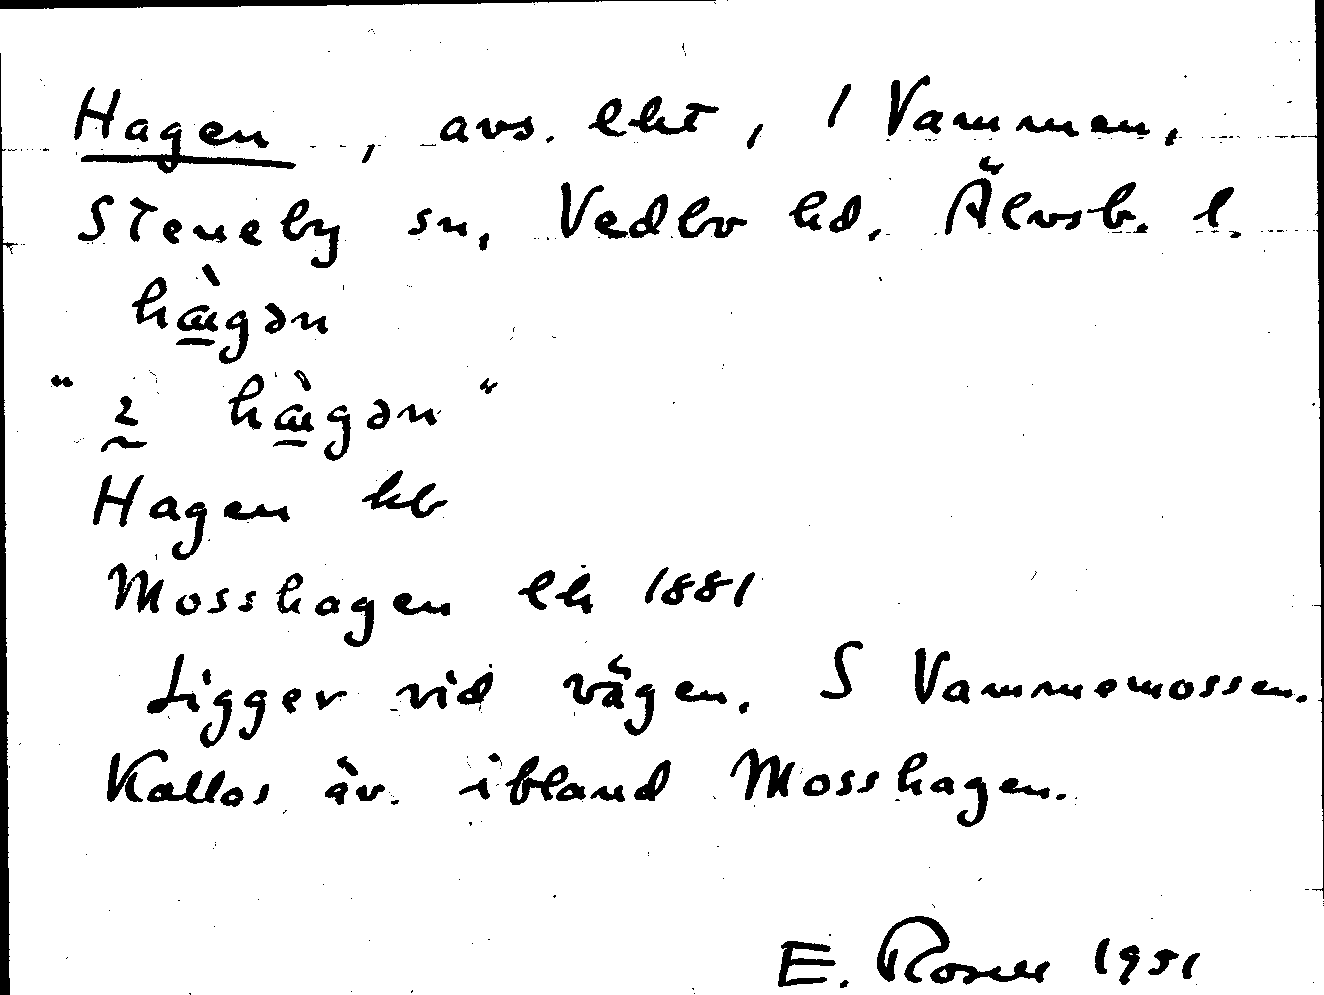 Hagen, avs. lht, 1 Vammen,
Steneby sn, Vedbo hd. Älvsb. l.
hàgən
"ɩ hàgən"
Hagen kb
Mosshagen lh 1881
Ligger vid vägen. S Vammemossen.
Kallas äv. ibland Mosshagen.
E. Rosell 1951